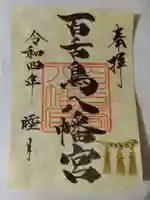 奉拝
百舌鳥八幡宮
令和四年
睦月